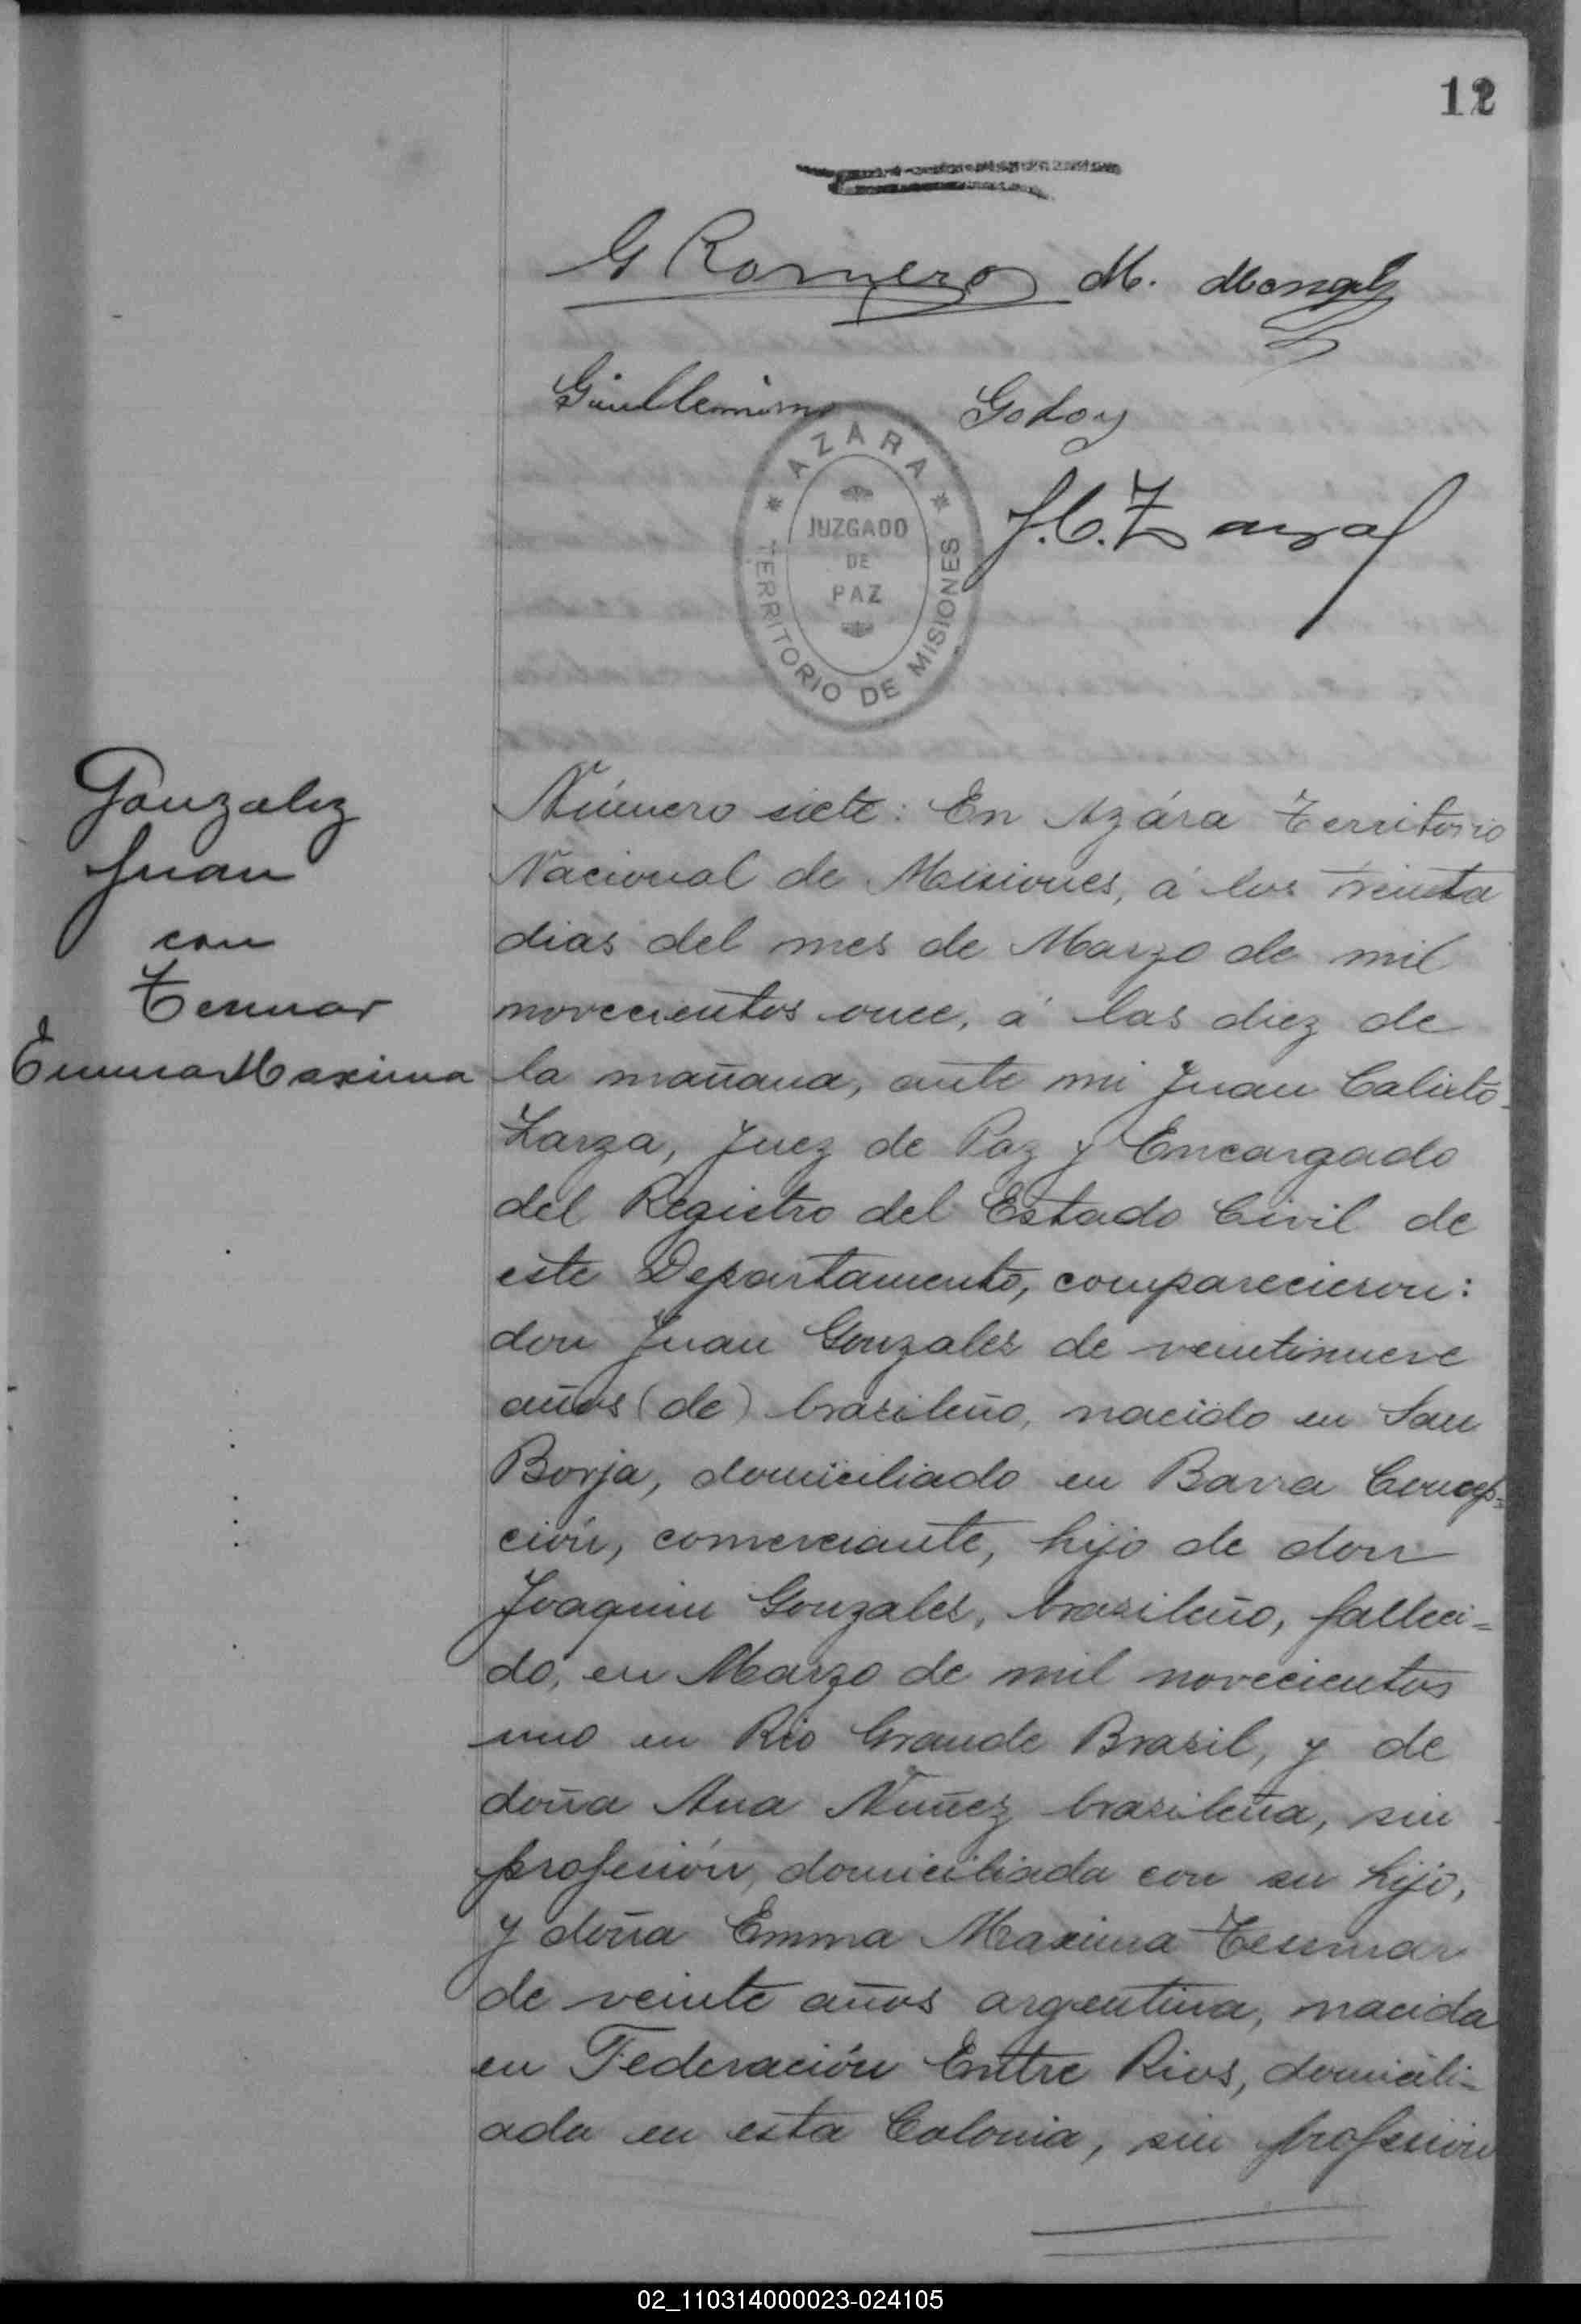 12
G Romero M.
Guillermo Godoy
AZARA
JUZGADO
DE
PAZ
TERRITORIO DE MISIONES
J.C. Zarza
Gonzalez
Juan
con
Emma Maxima
Número siete: En Azára Territorio
Nacional de Misiones, á los treinta
dias del mes de Marzo de mil
novecientos once, á las diez de
la mañana, ante mi Juan Calixto
Zarza, Juez de Paz y Encargado
del Registro del Estado Civil de
este Departamento, comparecieron:
don Juan Gonzales de veintinueve
años (de) brasileño, nacido en San
Borja, domiciliado en Barra Concep=
ción, comerciante, hijo de don
Joaquin Gonzales, brasileño, falleci=
do, en Marzo de mil novecientos
uno en Rio Grande Brasil, y de
doña Ana Nuñez brasileña, sin
profesión, domiciliada con su hijo,
y doña Emma Maxima
de veinte años argentina, nacida
en Federación Entre Rios, domicili=
ada en esta Colonia, sin profesión
02_110314000023-024105